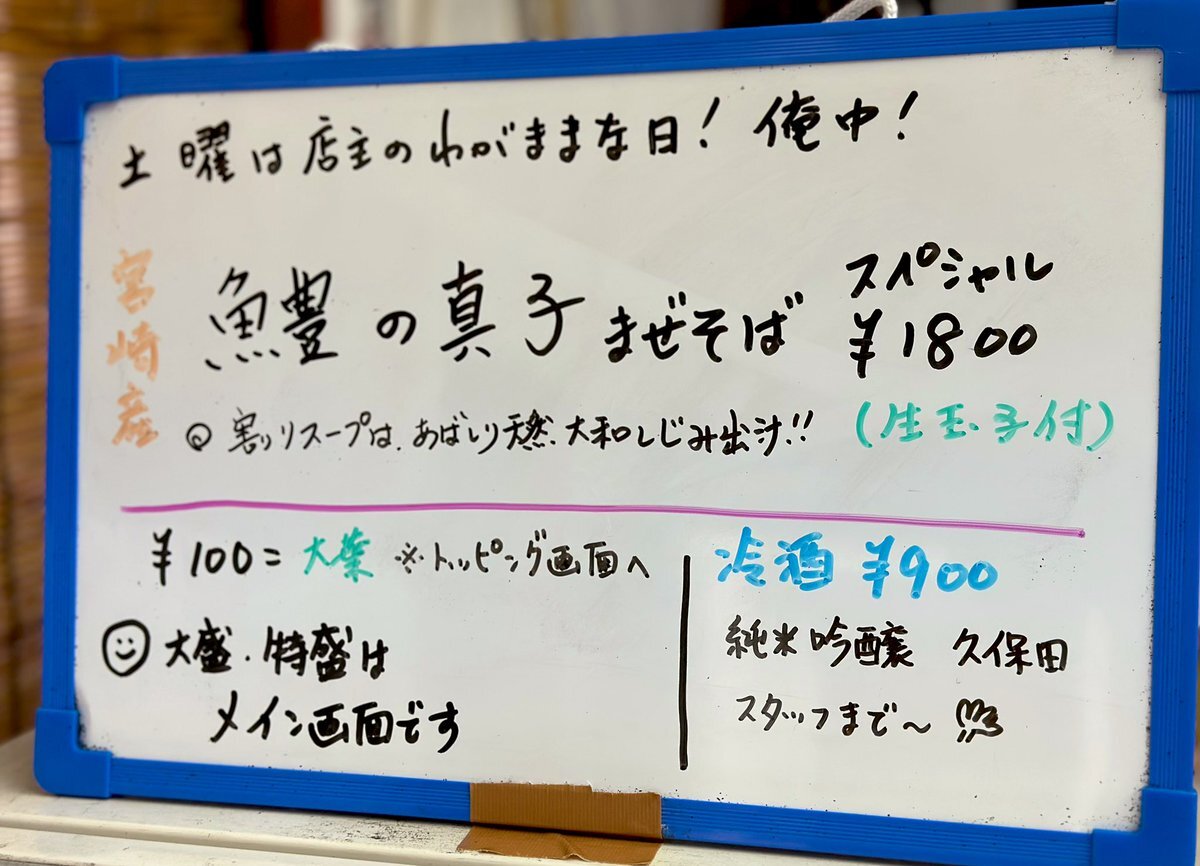 土曜は店主のわがままな日！俺中！
宮崎産
鱧の真子まぜそば
スペシャル
¥1800
◎割りスープは、あばしり天然、大和しじみ出汁!!
(生玉子付)
¥100=大葉 ※トッピング画面へ
大盛・特盛は
メイン画面です
冷酒 ¥900
純米吟醸 久保田
スタッフまで〜